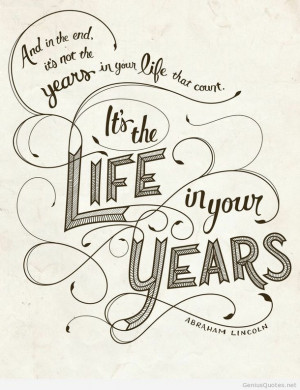 And in the end,
it's not the
years in your life that count.
It's the
LIFE
in your
YEARS
ABRAHAM LINCOLN
GeniusQuotes.net